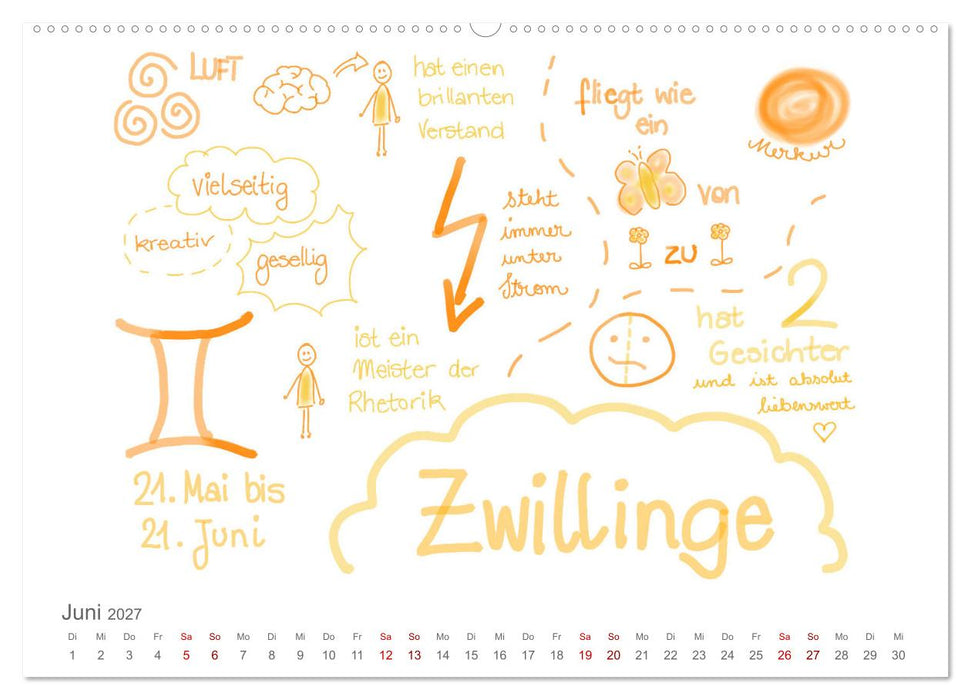 LUFT
hat einen
brillanten
Verstand
fliegt wie
ein
Merkur
von
zu
vielseitig
kreativ
gesellig
steht
immer
unter
Strom
ist ein
Meister der
Rhetorik
hat 2
Gesichter
und ist absolut
liebenswert
21. Mai bis
21. Juni
Zwillinge
Juni 2027
Di Mi Do Fr Sa So Mo Di Mi Do Fr Sa So Mo Di Mi Do Fr Sa So Mo Di Mi Do Fr Sa So Mo Di Mi
1 2 3 4 5 6 7 8 9 10 11 12 13 14 15 16 17 18 19 20 21 22 23 24 25 26 27 28 29 30